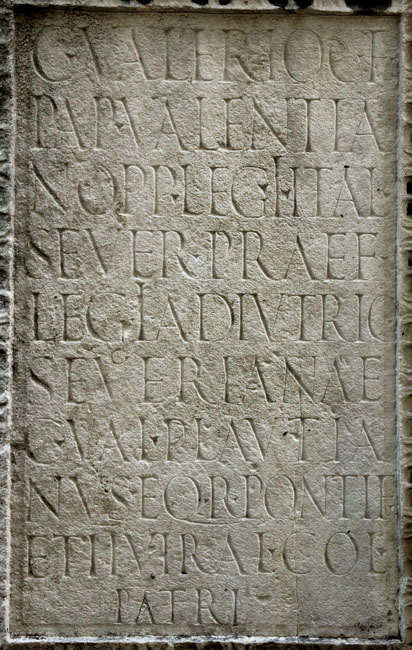 C·VALERIO·C·F
PAP·VALENTIA
NO·P·P·LEG·II·ITAL
SEVER·PRAEF·
LEG·I·ADIVTRIC
SEVERIANAE
C·VAL·PLAVTIA
NVS·EQ·R·PONTIF
ET·IIVIRAL·COL·
PATRI